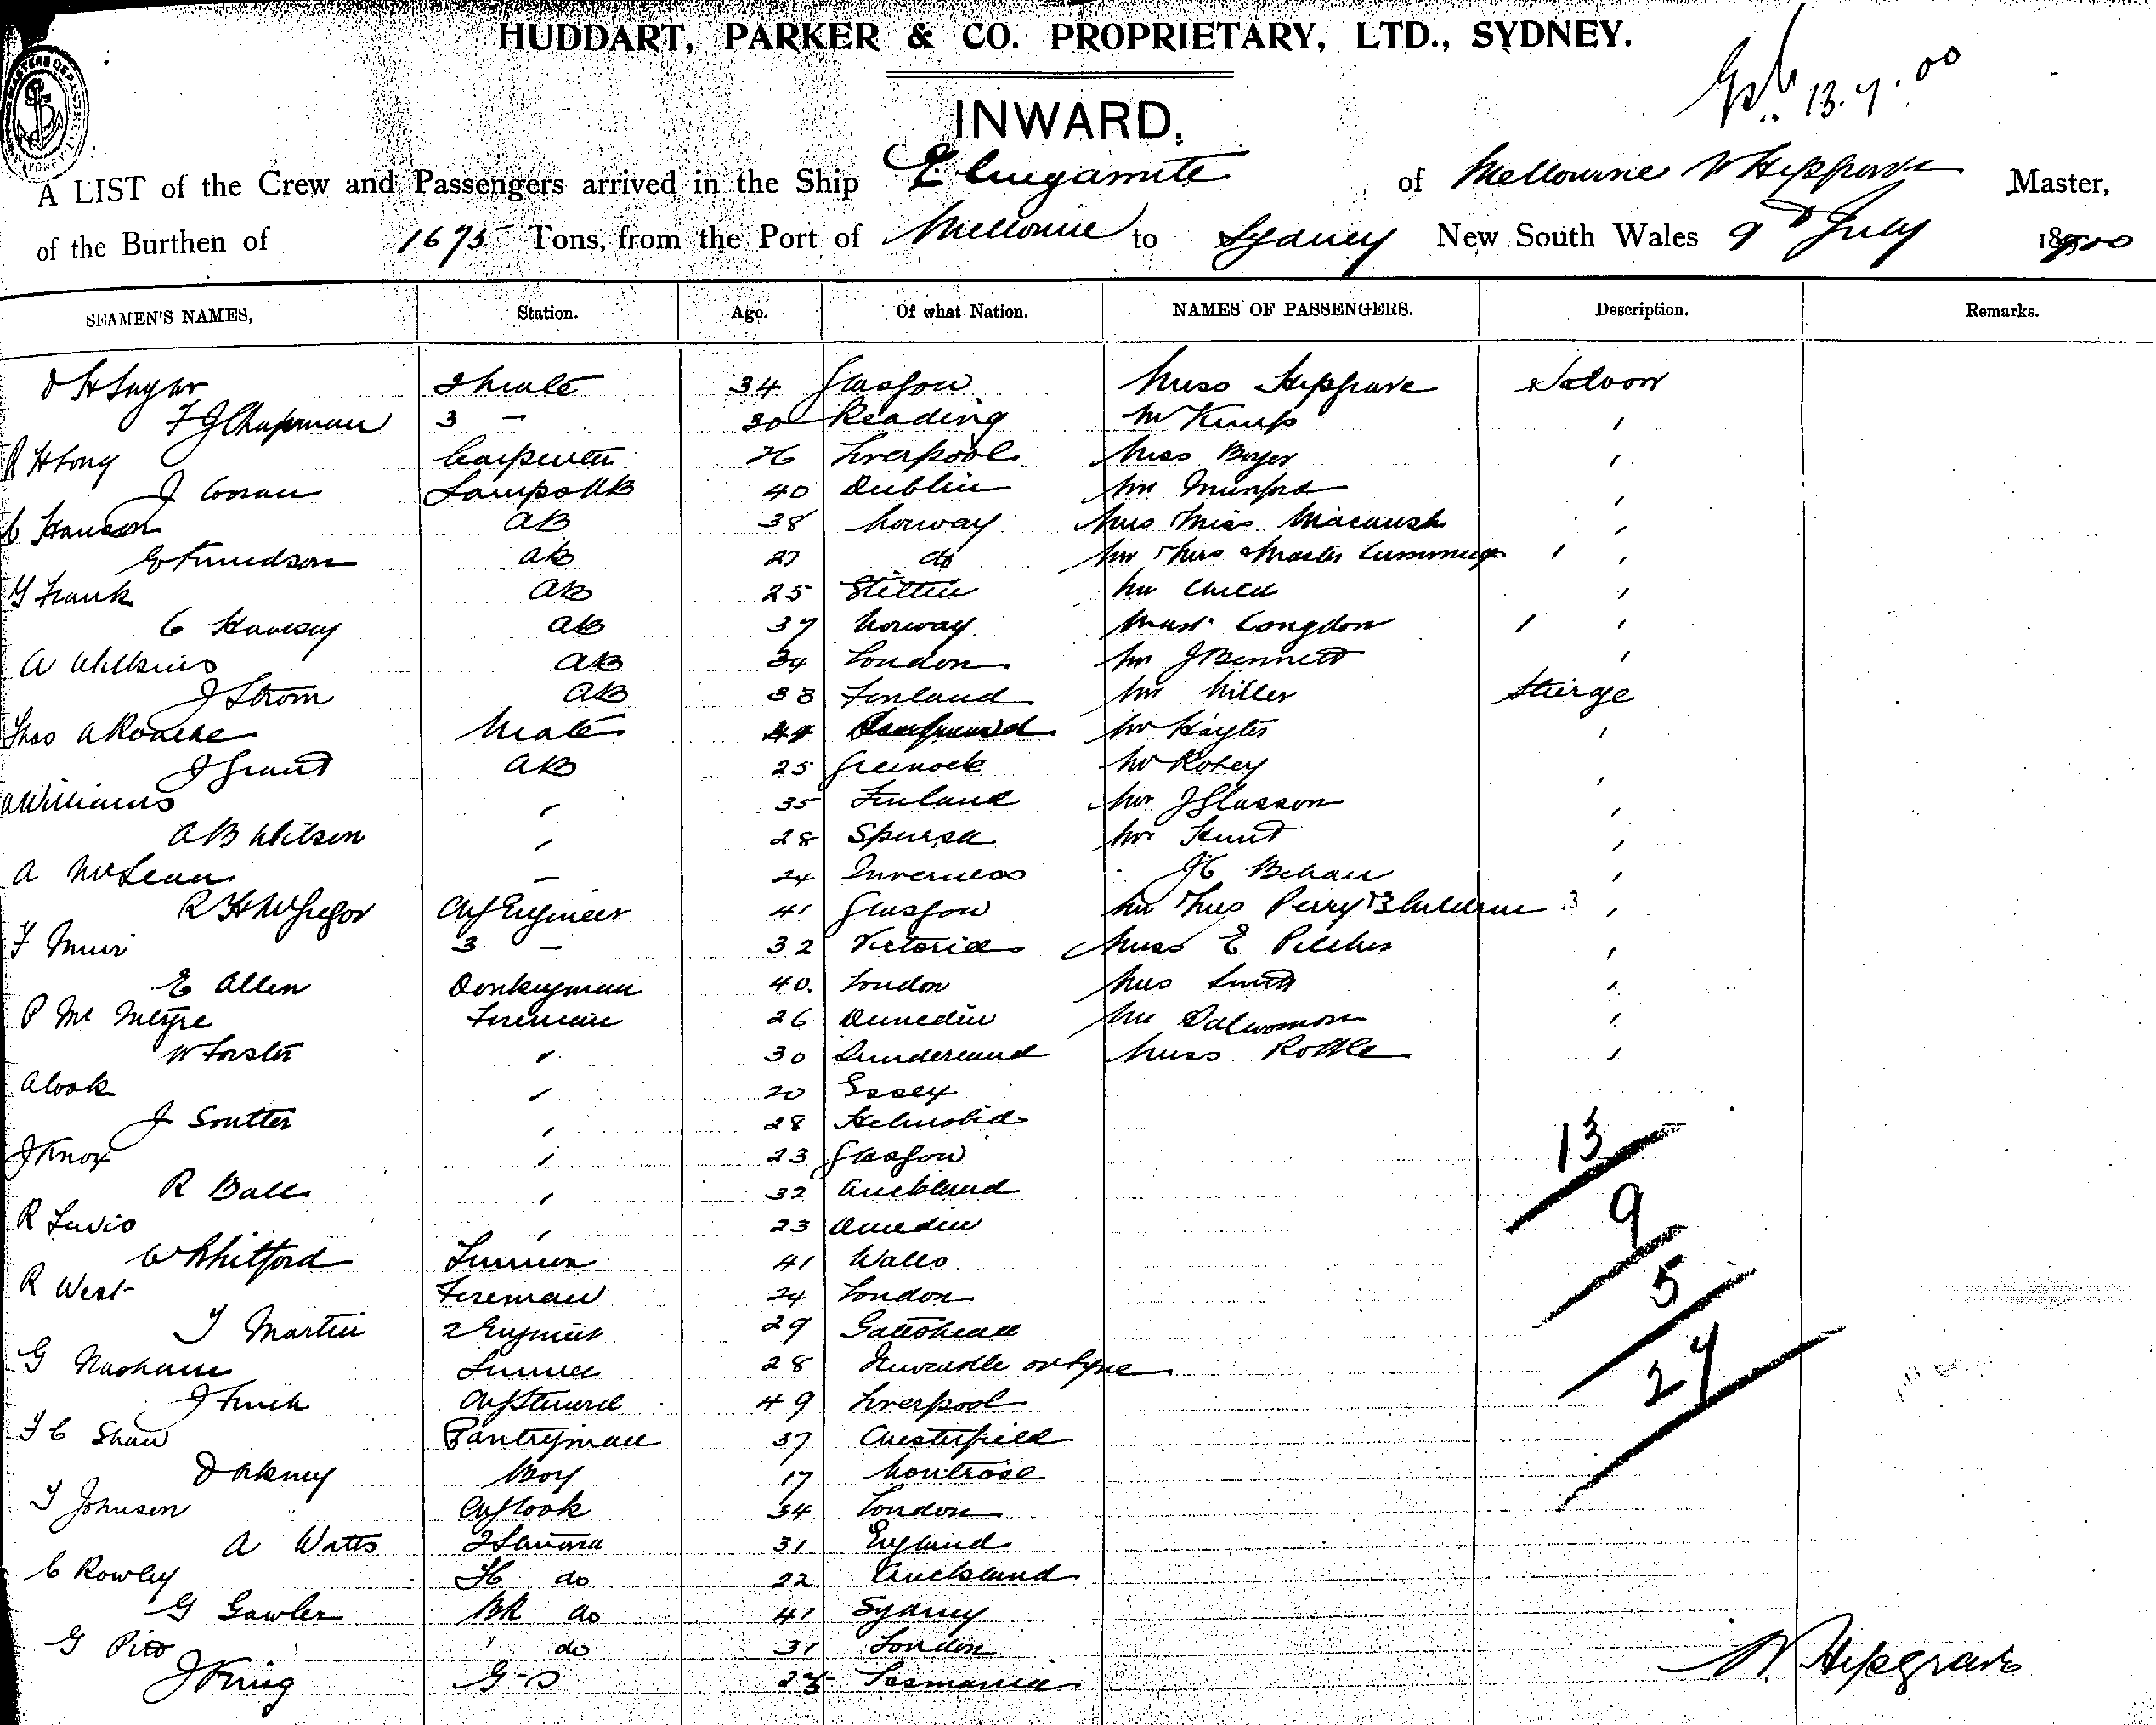 HUDDART, PARKER & CO. PROPRIETARY, LTD., SYDNEY.
13.7.00
INWARD.
A LIST of the Crew and Passengers arrived in the Ship Elingamite of Melbourne W Hepgrave Master,
of the Burthen of 1675 Tons, from the Port of Melbourne to Sydney New South Wales 9 July 1900
SEAMEN'S NAMES, Station. Age. Of what Nation. NAMES OF PASSENGERS. Description. Remarks.
34 Glasgow Miss Hepgrave Saloon
F J Chapman 3 - 30 Reading Mr Kemp "
R H Long Carpenter 26 Liverpool Miss "
J Conan Lamps AB 40 Dublin Mr Munford "
C Hansen AB 38 Norway Mrs Miss "
E Knudson AB 27 do Mr Mrs Master Cummings " "
G Frank AB 25 Stettin Mr Child "
C AB 37 Norway Mast Congdon " "
A Wilkins AB 34 London Mr J Bennett "
J Strom AB 33 Finland Mr Miller Steerage
Thos A Roarke Mate 44 Mr Hayter "
J Grant AB 25 Greenock Mr Robey "
A Williams " 35 Finland Mr J Glasson "
A B Wilson " 28 Mr Hunt "
A McLean - 24 Inverness J C Behan "
R H McGregor Chf Engineer 41 Glasgow Mr Mrs Perry & 3 Children 3 "
F Muir 3 - 32 Victoria Miss E Pilcher "
E Allen Donkeyman 40 London Mrs Smith "
P Mc Intyre Fireman 26 Dunedin Mr "
W Forster " 30 Sunderland Miss Rottle "
A Cook " 20 Essex
J Soutter " 28
J Knox " 23 Glasgow
R Ball " 32 Auckland
R Lewis " 23 Dunedin
W Whitford Trimmer 41 Wales
R West Fireman 24 London
T Martin 2 Engineer 29 Gateshead
G Trimmer 28 Newcastle on Tyne
J Finch Chf Steward 49 Liverpool
T C Shaw Pantryman 37 Chesterfield
D Boy 17 Montrose
T Johnson Chf Cook 34 London
A Watts 2 Steward 31 England
C Rowley do 22 Auckland
G Gawler BR do 41 Sydney
G Pitt " do 31 London
J King G-S Tasmania
13
9
5
27
W Hepgrave